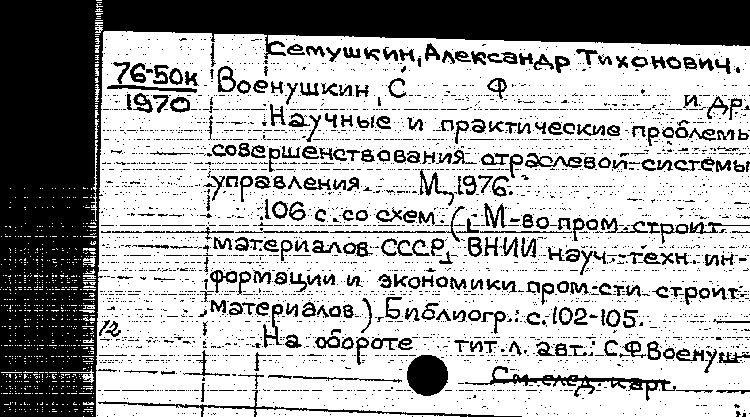 Семушкин, Александр Тихонович.
76-50к
1970
Военушкин, С Ф и др.
Научные и практические проблемы
совершенствования отраслевой системы
управления. М, 1976.
106 с. со схем. (М-во пром. строит.
материалов СССР, ВНИИ науч.-техн. ин-
формации и экономики пром-сти строит.
материалов). Библиогр.: с. 102-105.
12
На обороте тит. л. авт.: С.Ф. Военуш-
См. след. карт.